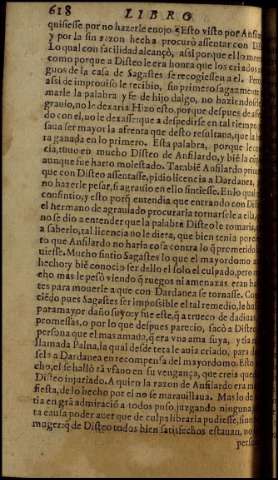 618 LIBRO
quisiesse por no hazerle enojo. Esto visto por Anfilar
y por la sin razon hecha procurò assentar con Dis
Lo qual con facilidad alcançò, assi porque el lo mere
como porque a Disteo le era honra que los criados
guos de la casa de Sagastes se recogiessen a el.
assi de improuiso le recibio, su primero sagazmente
marle la palabra y fe de hijo dalgo, no haziendole
grauio, no le dexaria Hizo esto, porque despues de assen
do con el, no le dexasse: que a despedirse en tal tiempo
saua ser mayor la afrenta que desto resultaua, que la
ra ganada en lo primero. Esta palabra, porque le
cia, tuuo en mucho Disteo de Anfilardo, y biē la cū
aunque fue harto molestado. Tambiē Anfilardo primero
que con Disteo assentasse, pidio licencia a Dardanea,
no hazerle pesar, si agrauio en ello sintiesse. En lo qual
consintio, y esto porq̃ entendia que entrando con Dis
el hermano de agrauiado procuraria tornarsele a ella,
no se dio a entender que la palabra Disteo le tomaria,
a saberlo, tal licencia no le diera, que bien tenia por
to que Anfilardo no haria cosa contra lo q̃ prometido
tuuiesse. Mucho sintio Sagastes lo que el mayordomo a
hecho: y biē conocio ser dello el solo el culpado, pero
cho mas le pesò viendo q̃ ruegos ni amenazas eran
tes para mouerle a que con Dardanea se tornasse. Co
ciēdo pues Sagastes ser impossible el tal remedio, le hu
para mayor daño suyo: y fue este, q̃ a trueco de dadiuas
promessas, o por lo que despues parecio, sacò a Disteo
persona que el mas amaua, q̃ era vna ama suya, y tia
llamada Palna, la qual desde teta le auia criado, para dar
sela a Dardanea en recompensa del mayordomo. Esto
cho, el se hallò tā vfano en su vengança, que creia que
Disteo injuriado. A quien la razon de Anfilardo era
fiesta, de lo hecho por el no se marauillaua. Mas lo de
tia en grā admiraciō a todos puso, juzgando ninguna
ta causa poder auer que de culpa libraria pudiesse, sino
muger: q̃ de Disteo todos bien satisfechos estauan, no
perso